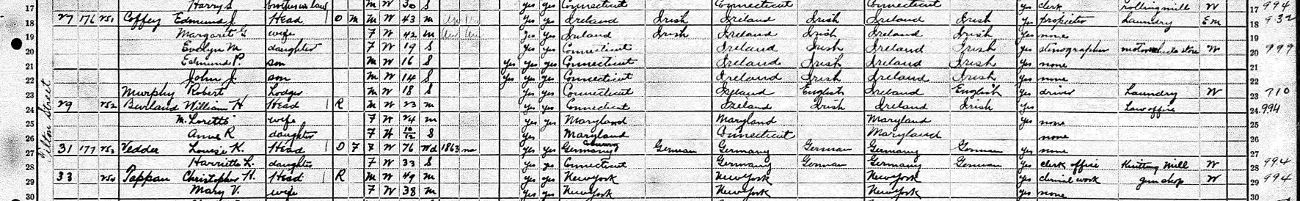 17 Harry S brother in law M W 30 S Yes Yes Connecticut Connecticut Connecticut Yes clerk rolling mill W 17 994
18 27 176 Coffey Edmund J Head O M M W 43 m Yes Yes Ireland Irish Ireland Irish Ireland Irish Yes proprietor Laundry Em 18 932
19 Margaret G wife F W 42 m Yes Yes Ireland Irish Ireland Irish Ireland Irish Yes none 19
20 Evelyn M daughter F W 19 S Yes Yes Connecticut Ireland Irish Ireland Irish Yes stenographer W 20 999
21 Edmund P. son M W 16 S Yes Yes Yes Connecticut Ireland Irish Ireland Irish Yes none 21
22 John J. son M W 14 S Yes Yes Yes Connecticut Ireland Irish Ireland Irish Yes none 22
23 Murphy Robert Lodger M W 18 S Yes Yes Connecticut Ireland English Ireland English Yes driver Laundry W 23 710
24 29 Burland William H Head R M W 23 m Yes Yes Connecticut Ireland Irish Ireland Irish Yes Law office 24 994
25 M. Loretto wife F W 24 m Yes Yes Maryland Maryland Maryland Yes none 25
26 Anne R daughter F W 10/12 S Maryland Connecticut Maryland none 26
27 31 177 Vedder Louise K. Head O F F W 76 Wd 1863 na Yes Yes Germany German Germany German Germany German Yes none 27
28 Harriette L. daughter F W 33 S Yes Yes Connecticut Germany German Germany German Yes clerk office Knitting mill W 28 994
29 33 Pappan Christopher H. Head R M W 49 m Yes Yes New York New York New York Yes clerical work gun shop W 29 994
30 Mary V. wife F W 38 m Yes Yes New York New York New York Yes none 30
Street